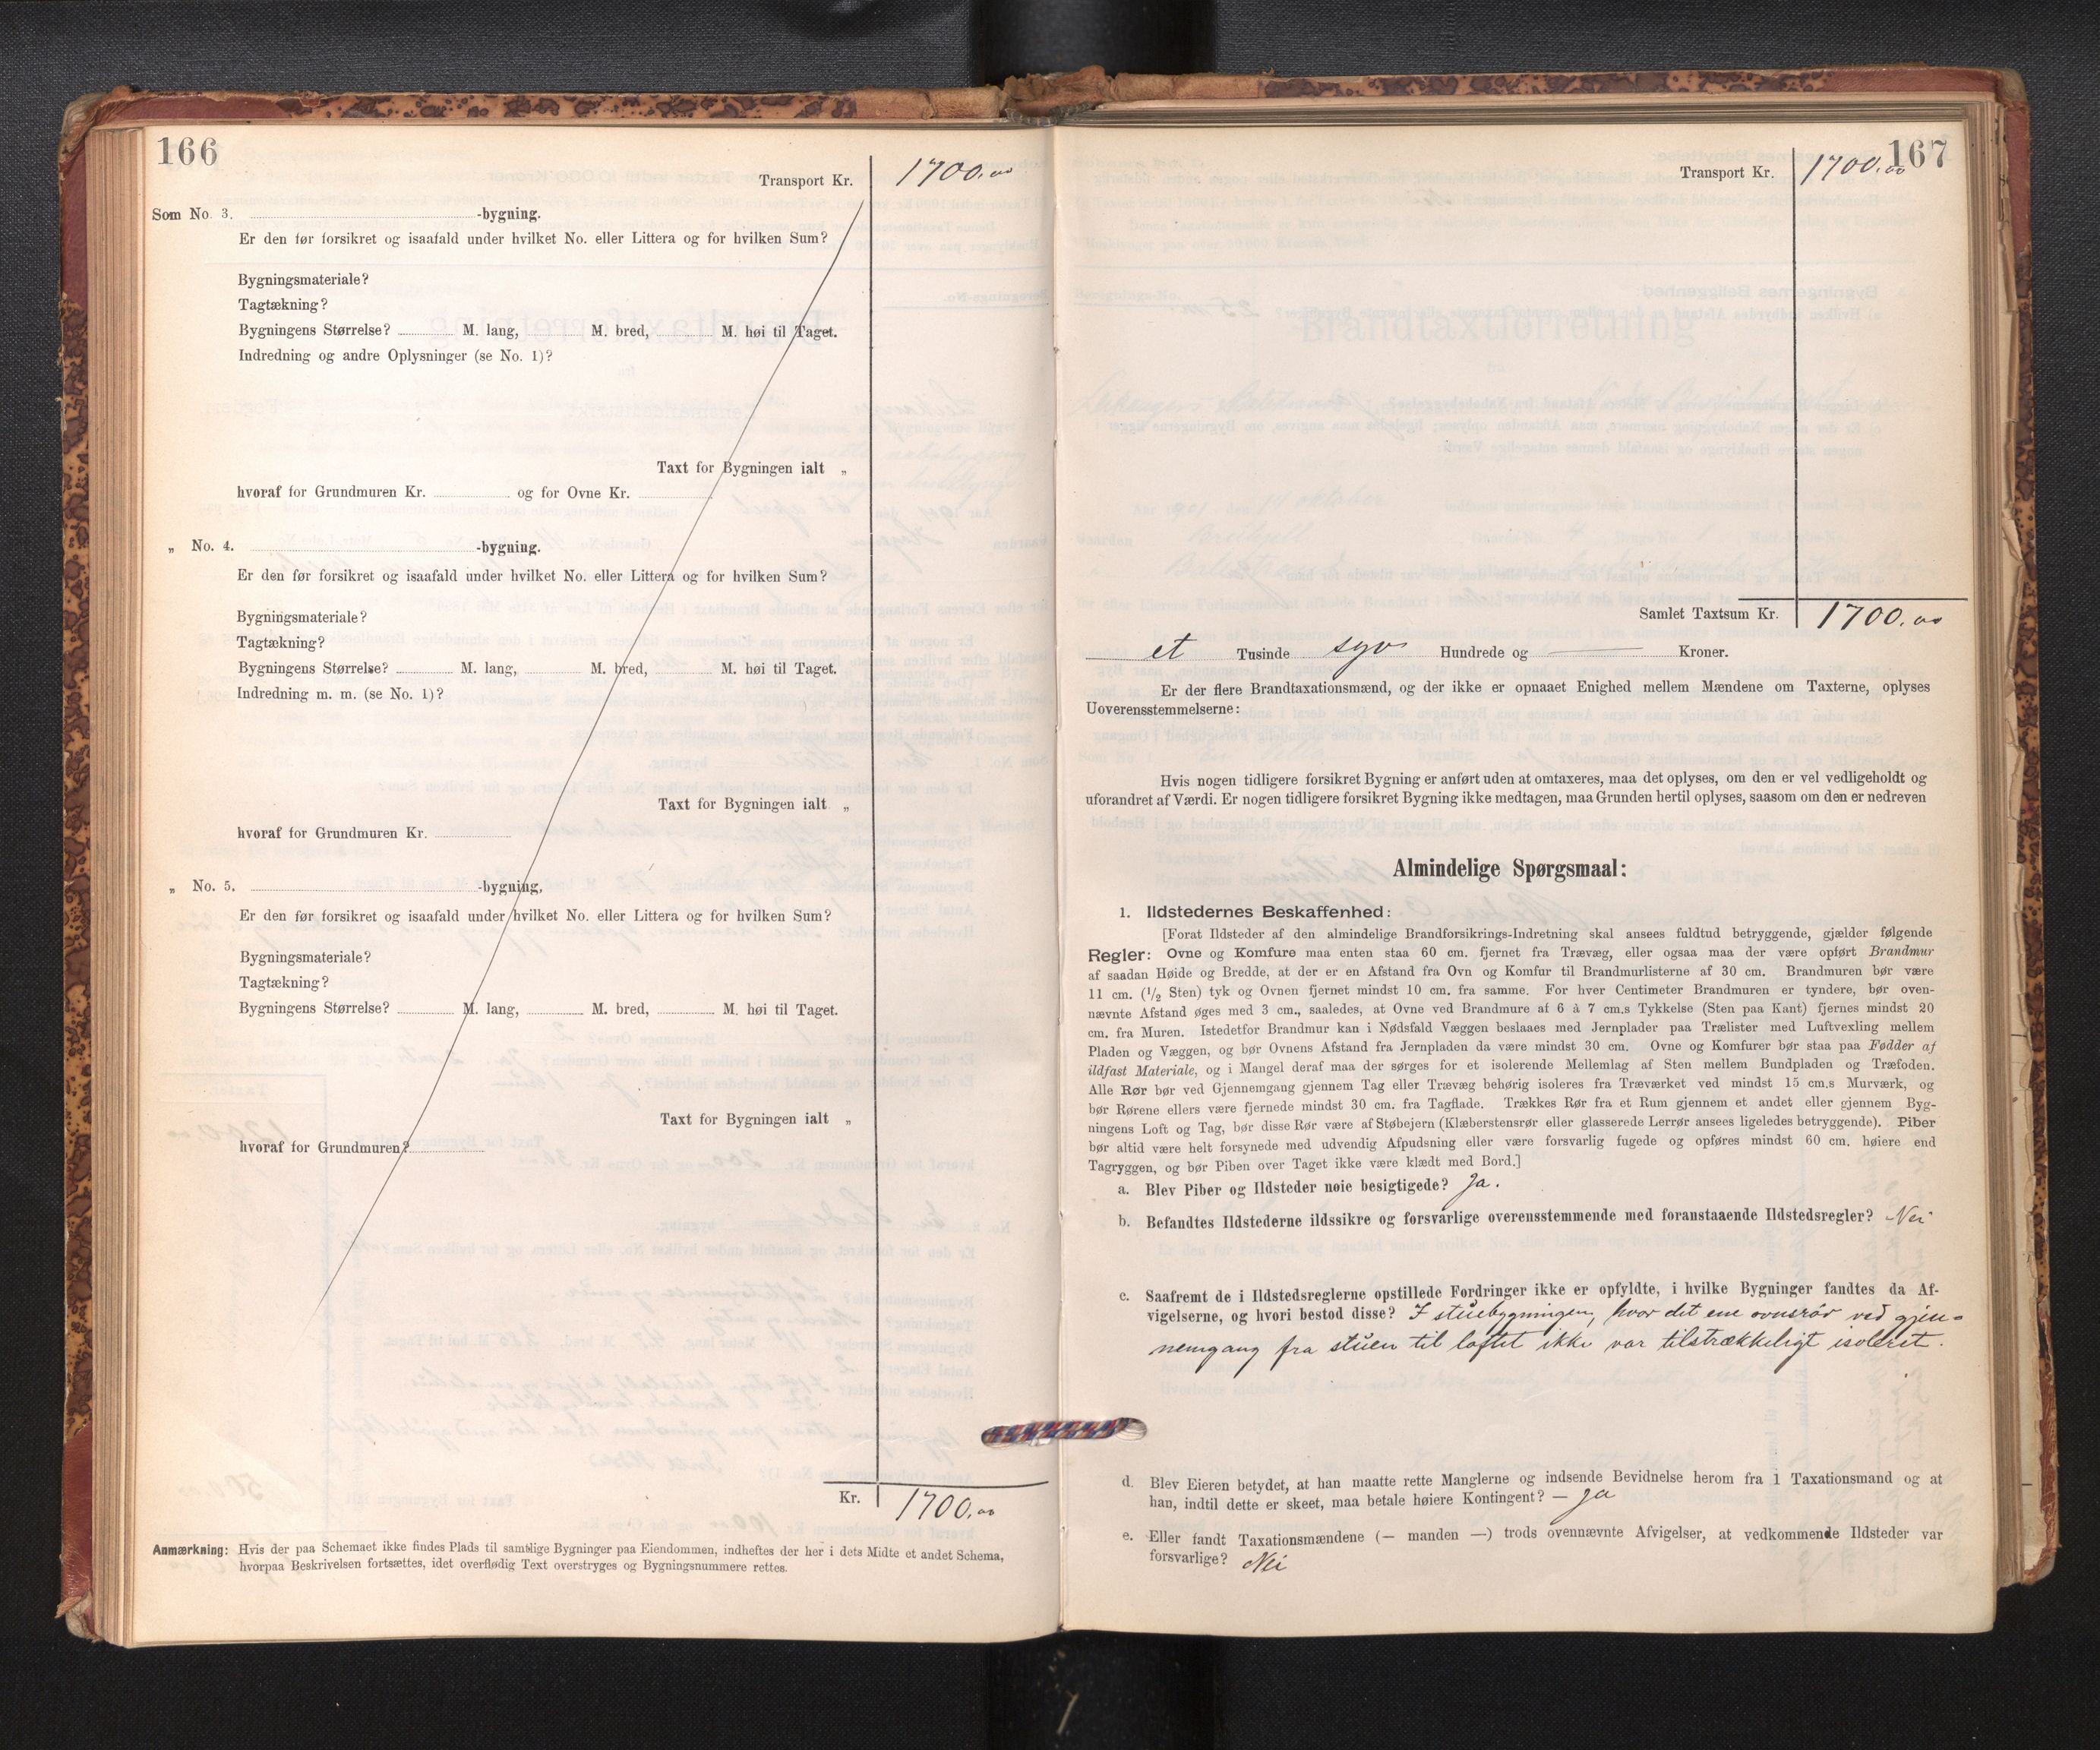 166
Transport Kr. 1700.00
Som No. 3. -bygning.
Er den før forsikret og isaafald under hvilket No. eller Littera og for hvilken Sum?
Bygningsmateriale?
Tagtækning?
Bygningens Størrelse? M. lang, M. bred, M. høi til Taget.
Indredning og andre Oplysninger (se No. 1)?
Taxt for Bygningen ialt „
hvoraf for Grundmuren Kr. og for Ovne Kr.
„ No. 4. -bygning.
Er den før forsikret og isaafald under hvilket No. eller Littera og for hvilken Sum?
Bygningsmateriale?
Tagtækning?
Bygningens Størrelse? M. lang, M. bred, M. høi til Taget.
Indredning m. m. (se No. 1)?
Taxt for Bygningen ialt „
hvoraf for Grundmuren Kr.
„ No. 5. -bygning,
Er den før forsikret og isaafald under hvilket No. eller Littera og for hvilken Sum?
Bygningsmateriale?
Tagtækning?
Bygningens Størrelse? M. lang, M. bred, M. høi til Taget.
Taxt for Bygningen ialt „
hvoraf for Grundmuren?
Kr. 1700.00
Anmærkning: Hvis der paa Schemaet ikke findes Plads til samtlige Bygninger paa Eiendommen, indheftes der her i dets Midte et andet Schema,
hvorpaa Beskrivelsen fortsættes, idet overflødig Text overstryges og Bygningsnummere rettes.
167
Transport Kr. 1700.00
Samlet Taxtsum Kr. 1700.00
et Tusinde syv Hundrede og — Kroner.
Er der flere Brandtaxationsmænd, og der ikke er opnaaet Enighed mellem Mændene om Taxterne, oplyses
Uoverensstemmelserne:
Hvis nogen tidligere forsikret Bygning er anført uden at omtaxeres, maa det oplyses, om den er vel vedligeholdt og
uforandret af Værdi. Er nogen tidligere forsikret Bygning ikke medtagen, maa Grunden hertil oplyses, saasom om den er nedreven
Almindelige Spørgsmaal:
1. Ildstedernes Beskaffenhed:
[Forat Ildsteder af den almindelige Brandforsikrings-Indretning skal ansees fuldtud betryggende, gjælder følgende
Regler: Ovne og Komfure maa enten staa 60 cm. fjernet fra Trævæg, eller ogsaa maa der være opført Brandmur
af saadan Høide og Bredde, at der er en Afstand fra Ovn og Komfur til Brandmurlisterne af 30 cm. Brandmuren bør være
11 cm. (1/2 Sten) tyk og Ovnen fjernet mindst 10 cm. fra samme. For hver Centimeter Brandmuren er tyndere, bør oven-
nævnte Afstand øges med 3 cm., saaledes, at Ovne ved Brandmure af 6 à 7 cm.s Tykkelse (Sten paa Kant) fjernes mindst 20
cm. fra Muren. Istedetfor Brandmur kan i Nødsfald Væggen beslaaes med Jernplader paa Trælister med Luftvexling mellem
Pladen og Væggen, og bør Ovnens Afstand fra Jernpladen da være mindst 30 cm. Ovne og Komfurer bør staa paa Fødder af
ildfast Materiale, og i Mangel deraf maa der sørges for et isolerende Mellemlag af Sten mellem Bundpladen og Træfoden.
Alle Rør bør ved Gjennemgang gjennem Tag eller Trævæg behørig isoleres fra Træværket ved mindst 15 cm.s Murværk, og
bør Rørene ellers være fjernede mindst 30 cm. fra Tagflade. Trækkes Rør fra et Rum gjennem et andet eller gjennem Byg-
ningens Loft og Tag, bør disse Rør være af Støbejern (Klæberstensrør eller glasserede Lerrør ansees ligeledes betryggende). Piber
bør altid være helt forsynede med udvendig Afpudsning eller være forsvarlig fugede og opføres mindst 60 cm. høiere end
Tagryggen, og bør Piben over Taget ikke være klædt med Bord.]
a. Blev Piber og Ildsteder nøie besigtigede? Ja.
b. Befandtes Ildstederne ildssikre og forsvarlige overensstemmende med foranstaaende Ildstedsregler? Nei
c. Saafremt de i Ildstedsreglerne opstillede Fordringer ikke er opfyldte, i hvilke Bygninger fandtes da Af-
vigelserne, og hvori bestod disse? I stuebygningen, hvor det ene ovnsrør ved gjen-
nemgang fra stuen til loftet ikke var tilstrækkeligt isoleret.
d. Blev Eieren betydet, at han maatte rette Manglerne og indsende Bevidnelse herom fra 1 Taxationsmand og at
han, indtil dette er skeet, maa betale høiere Kontingent? — Ja
e. Eller fandt Taxationsmændene (— manden —) trods ovennævnte Afvigelser, at vedkommende Ildsteder var
forsvarlige? Nei